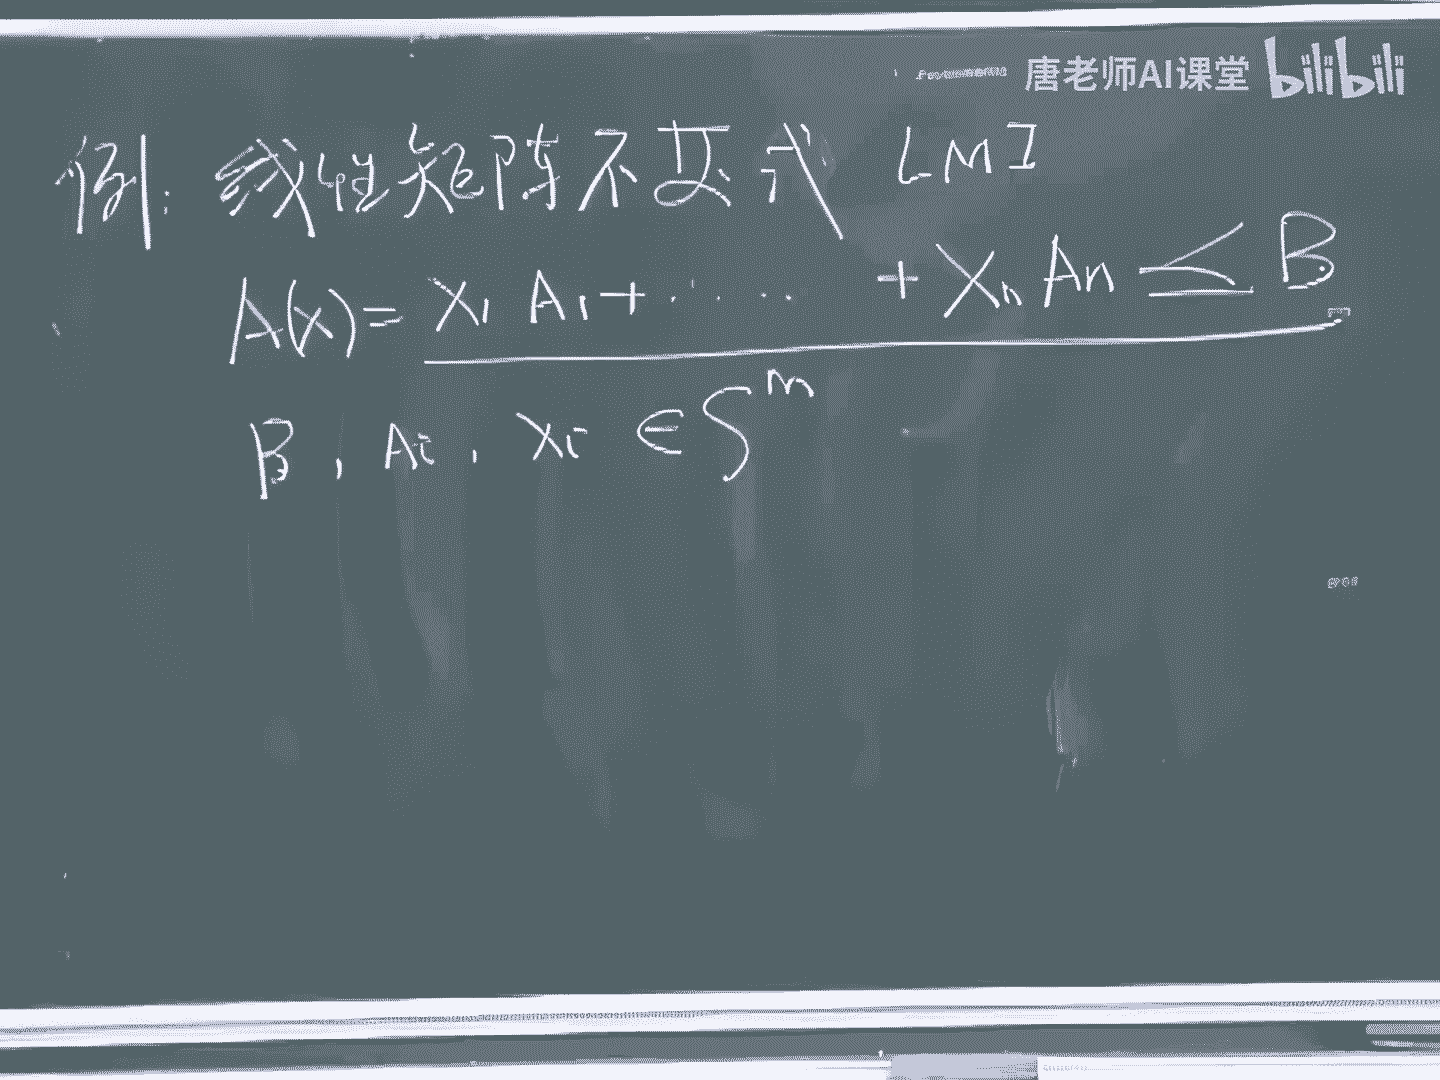 唐老师AI课堂 bilibili
例: 线性矩阵不变式 LMI
A(x)= x₁A₁+ · · · · + XₙAn ≤ B
B, Ai, xi ∈ Sᵐ